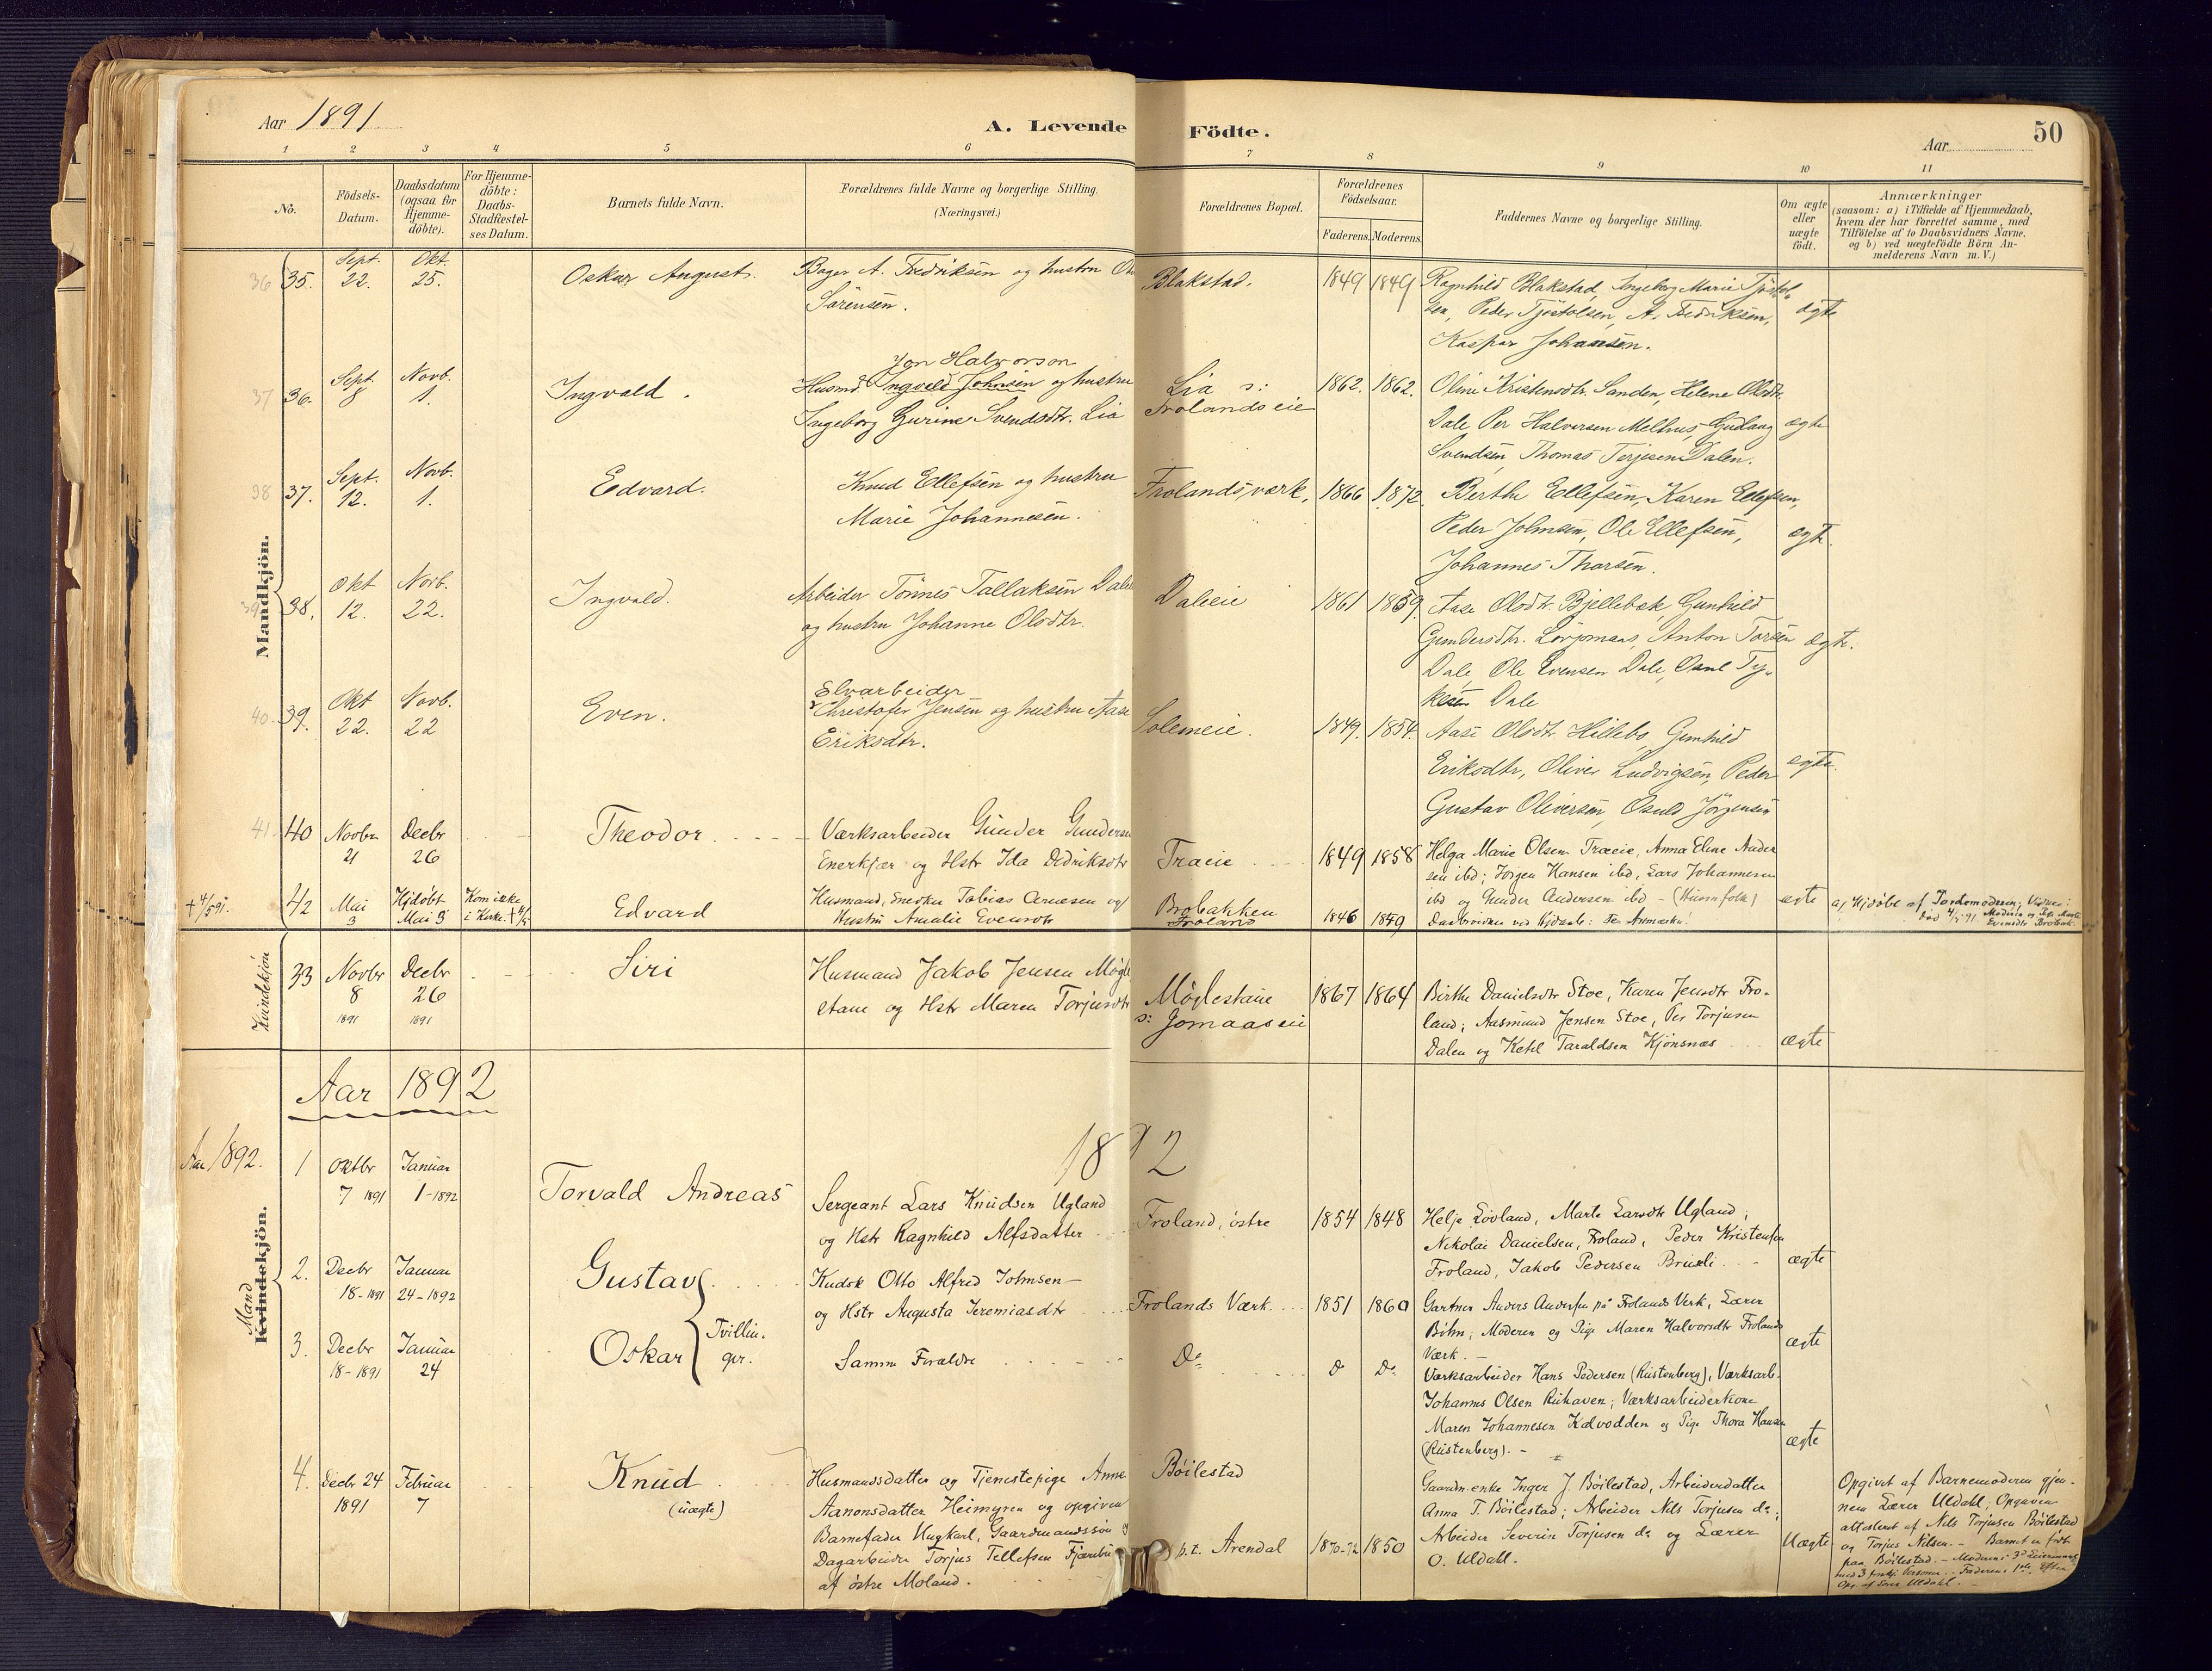 Aar 1891
A. Levende Födte.
Aar
50
1 2 3 4 5 6 7 8 9 10 11
No.
Födsels-Datum.
Daabsdatum (ogsaa for Hjemme-döbte).
For Hjemme-döbte: Daabs-Stadfæstel-ses Datum.
Barnets fulde Navn.
Forældrenes fulde Navne og borgerlige Stilling.
(Næringsvei.)
Forældrenes Bopæl.
Forældrenes Födselsaar.
Faderens. Moderens.
Faddernes Navne og borgerlige Stilling.
Om ægte eller uægte födt.
Anmærkninger
(saasom: a) i Tilfælde af Hjemmedaab,
hvem der har forrettet samme, med
Tilföielse af to Daabsvidners Navne,
og b) ved uægtefödte Börn An-
melderens Navn m. V.)
Mandkjön.
36 35. Sept. 22. Okt. 25. Oskar August. Bager A. Fredriksen og hustru
Sørensen.
Blakstad. 1849 1849
Ragnhild Blakstad, Ingeborg Marie Tjøstol-
sen, Peder Tjøstolsen, A. Fredriksen,
Kaspar Johansen.
ægte
37 36. Sept. 8 Novb. 1. Ingvald.
Jon Halvorson
Husmd. Ingvald Johnsen og hustru
Ingeborg Gurine Svendsdtr. Lia
Lia s:
Frolandseie
1862. 1862.
Oline Kristensdtr. Sanden, Helene Olsdtr.
Dale Per Halvorsen Melhus, Gudlaug
Svendsen, Thomas Terjesen Dalen.
ægte
38 37. Sept. 12. Novb. 1. Edvard.
Knud Ellefsen og hustru
Marie Johannesen.
Frolandsværk, 1866 1872.
Berthe Ellefsen, Karen Ellefsen,
Peder Johnsen, Ole Ellefsen,
Johannes Thorsen.
ægte.
39 38. Okt 12. Novb. 22. Ingvald.
Arbeider Tønnes Tallaksen Dale
og hustru Johanne Olsdtr.
Daleeie 1861 1859
Aase Olsdtr. Bjellebæk, Gunhild
Gundersdtr. Anton Tarsen
Dale, Ole Evensen Dale,
Dale
ægte.
40. 39. Okt 22. Novb. 22 Even.
Elvarbeider
Christofer Jensen og hustru Aase
Eriksdtr.
Solemeie. 1849. 1854.
Aase Olsdtr. Hillebo, Gunhild
Eriksdtr, Oliver Ludvigsen, Peder
Gustav Oliversen, Osuld Jörgensen
ægte.
41. 40 Novbr 21 Decbr 26 Theodor.
Værksarbeider Gunder Gunderse
Enerkjær og Hstr Ida Didriksdtr
Traeie 1849 1858
Helga Marie Olsen Træeie, Anna Eline Ander
sen ibd; Jørgen Hansen ibd, Lars Johannesen
ibd og Gunder Andersen ibd - (Husmfolk)
ægte
+ 4/5 91. 42 Mai 3 Hjdøbt Mai 3 Kom ikke i Kirke. + 4/5 Edvard
Husmand, Snedker Tobias Arnesen og
Hustru Amalie Evensdtr
Brobakken
Froland
1846 1849
Daabsvidner ved Hjdaab: Se Anmærkn!
a, Hjdøbt af Jordemoderen; Vidner:
død 4/5 91. Moderen og
Evensdtr Brobak.
Kvindekjön
33 Novbr 8 1891 Decbr 26 1891 Siri
Husmand Jakob Jensen Møgle
stane og Hstr Maren Torjusdtr
Møglestane
s: Jomaaseie
1867 1864
Birthe Danielsdtr Stoe, Karen Jensdtr Fro-
land; Aasmund Jensen Stoe, Per Torjusen
Dalen og Ketil Taraldsen Kjønsnæs
ægte
Aar 1892
1892
Aar 1892.
Mand
Kvindekjön.
1 Oktbr 7 1891 Januar 1-1892 Torvald Andreas
Sergeant Lars Knudsen Ugland
og Hstr Ragnhild Alfsdatter
Froland, østre 1854 1848
Helje Løvland, Marte Larsdtr Ugland;
Nikolai Danielsen, Froland, Peder Kristensen
Froland, Jakob Pedersen Brusli
ægte
2. Decbr 18-1891 Januar 24-1892 Gustav
Kudsk Otto Alfred Johnsen -
og Hstr Augusta Jeremiasdtr
Frolands Værk. 1851 1860
Gartner Anders Andersen på Frolands Verk, Lærer
Bøhn; Moderen og Pige Maren Halvorsdtr Frolands
Værk. -
ægte
3. Decbr 18-1891 Januar 24 Oskar
Tvillin.
ger.
Samme Forældre
Do do Do
Værksarbeider Hans Pedersen (Rustenberg), Værksarb.
Johannes Olsen Ruhaven; Værksarbeiderkone
Maren Johannesen Kalvodden og Pige Thora Hansen
(Rustenberg). -
ægte
4. Decbr 24 1891 Februar 7 Knud
(uægte)
Husmandsdatter og Tjenestepige Anne
Aanonsdatter Heimyren og opgiven
Barnefader Ungkarl, Gaardmandssøn og
Dagarbeider Torjus Tellefsen Fjærebu
af østre Moland.
Bøilestad
p.t. Arendal
1870-72 1850
Gaardm.enke Inger J. Bøilestad, Arbeiderdatter
Anna T. Bøilestad; Arbeider Nils Torjusen do;
Arbeider Severin Torjusen do og Lærer
O. Uldahl.
Uægte
Opgivet af Barnemoderen gjen-
nem Lærer Uldahl; Opgaven
attesteret af Nils Torjusen Bøilestad
og Torjus Nilsen. - Barnet er født
paa Bøilestad. - Moderens 3die Leiermaal
med 3 forskj. Personer. - Faderens 1ste. Efter
Opg. af Lærer Uldahl.